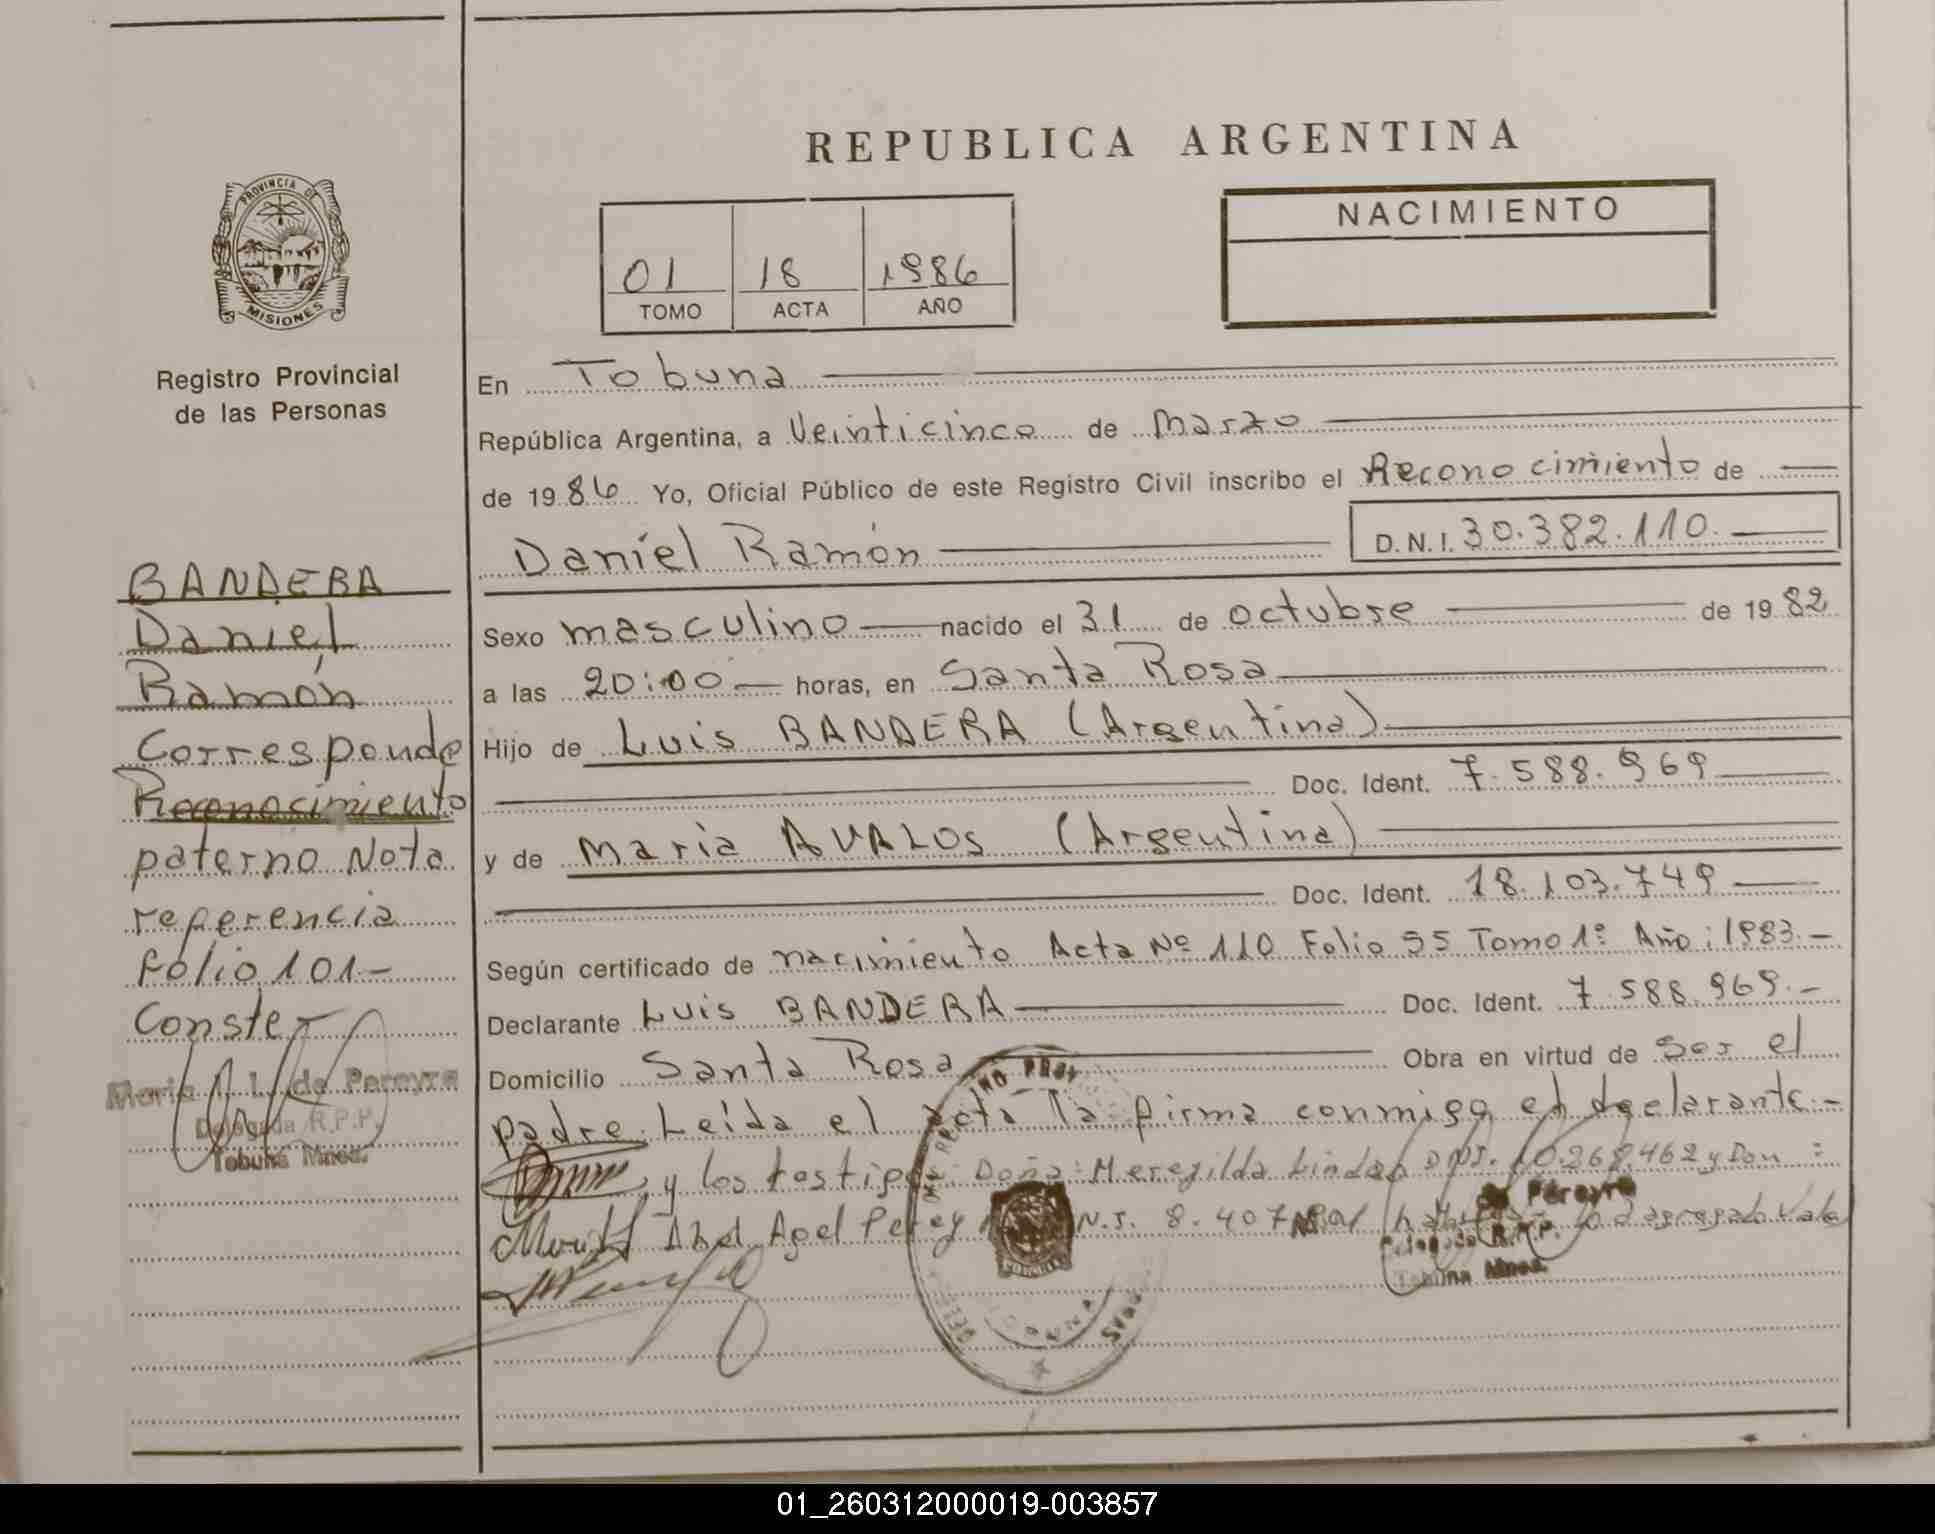 REPUBLICA ARGENTINA
PROVINCIA DE
MISIONES
Registro Provincial
de las Personas
01 18 1986
TOMO ACTA AÑO
NACIMIENTO
En Tobuna
República Argentina, a Veinticinco de Marzo
de 1986 Yo, Oficial Público de este Registro Civil inscribo el Reconocimiento de
Daniel Ramón D.N.I. 30.382.110.
Sexo masculino nacido el 31 de octubre de 1982
a las 20:00 horas, en Santa Rosa
Hijo de Luis BANDERA (Argentina)
Doc. Ident. 7.588.969
y de Maria AVALOS (Argentina)
Doc. Ident. 18.103.749
Según certificado de nacimiento Acta Nº 110 Folio 55 Tomo 1º Año: 1983.-
Declarante Luis BANDERA Doc. Ident. 7.588.969.-
Domicilio Santa Rosa Obra en virtud de Ser el
padre. Leída el acta la firma conmigo el declarante.-
y los testigos: Doña: Meregilda DNI. 10.268.462 y Don:
Abel N.I. 8.407 agregado Vale
BANDERA
Daniel
Ramón
Corresponde
Reconocimiento
paterno Nota
referencia
folio 101.-
Conste
Maria de Pereyra
Delegada R.P.P.
Tobuna Mnes.
de Pereyra
Delegada R.P.P.
Tobuna Mnes.
01_260312000019-003857